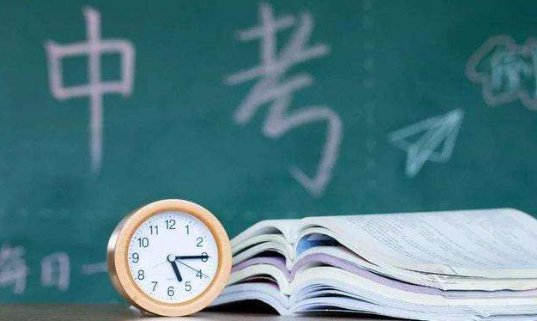 中考
倒
每日一
12
1
2
3
4
5
6
7
8
9
10
11